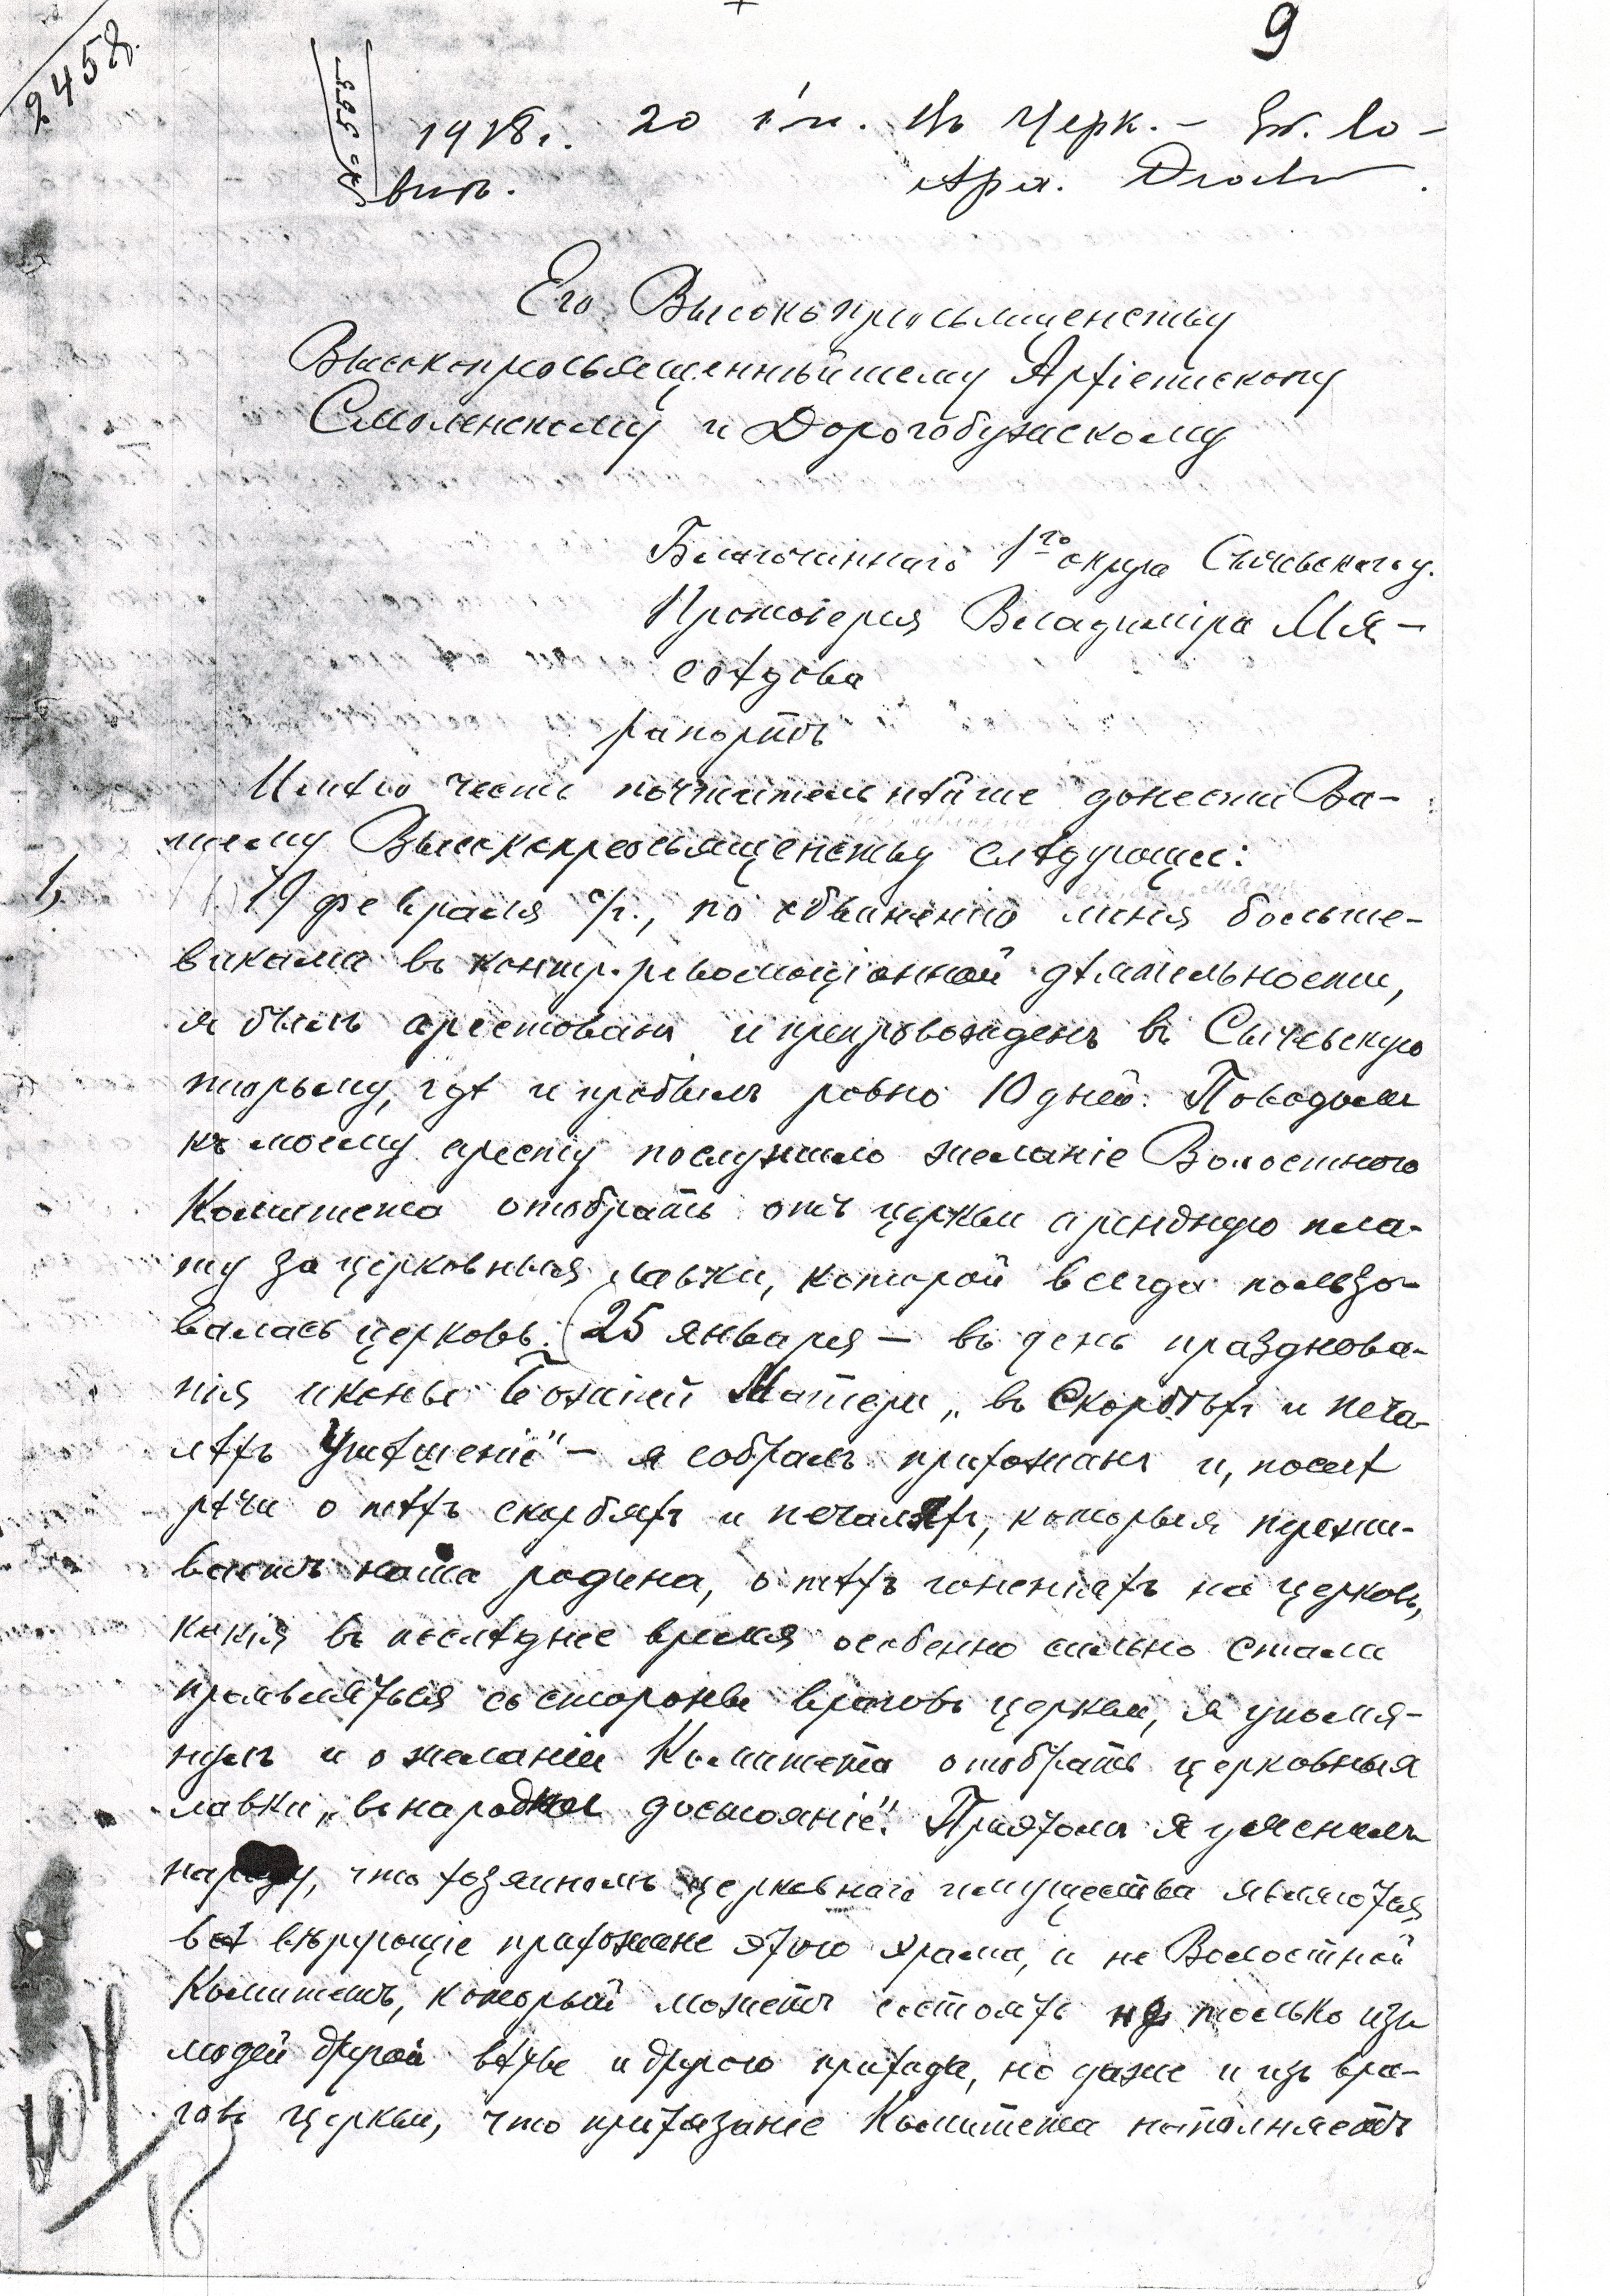 9
2458.
№ 553
1918 г. 20 іюн. Въ Черк. – Ев. Со-
вѣтъ.
Его Высокопреосвященству
Высокопреосвященнѣйшему Архіепископу
Смоленскому и Дорогобужскому
Благочиннаго 1го округа Сычевскаго у.
Протоіерея Владиміра Мя-
соѣдова
рапортъ
Имѣю честь почтительнѣйше донести Ва-
шему Высокопреосвященству слѣдующее:
1) 19 февраля с/г., по обвиненію меня больше-
виками въ контр-революціонной дѣятельности,
я былъ арестованъ и препровожденъ въ Сычевскую
тюрьму, гдѣ и пробылъ ровно 10 дней. Поводомъ
къ моему аресту послужило желаніе Волостного
Комитета отобрать отъ церкви арендную пла-
ту за церковныя лавки, которой всегда пользо-
валась церковь. (25 января – въ день празднова-
нія иконы Божіей Матери „въ Скорбѣхъ и печа-
лѣхъ Утѣшеніе" – я собралъ прихожанъ и, послѣ
рѣчи о тѣхъ скорбяхъ и печаляхъ, которыя пережи-
ваетъ наша родина, о тѣхъ гоненіяхъ на церковь,
какія въ послѣднее время особенно сильно стали
проявляться со стороны враговъ церкви, я упомя-
нулъ и о желаніи Комитета отобрать церковныя
лавки „въ народное достояніе". При этомъ я уяснилъ
народу, что хозяиномъ церковнаго имущества являются
всѣ вѣрующіе прихожане этого храма, и не Волостной
Комитетъ, который можетъ состоять не только изъ
людей другой вѣры и другого прихода, но даже и изъ вра-
говъ церкви, что притязаніе Комитета напоминаетъ
18